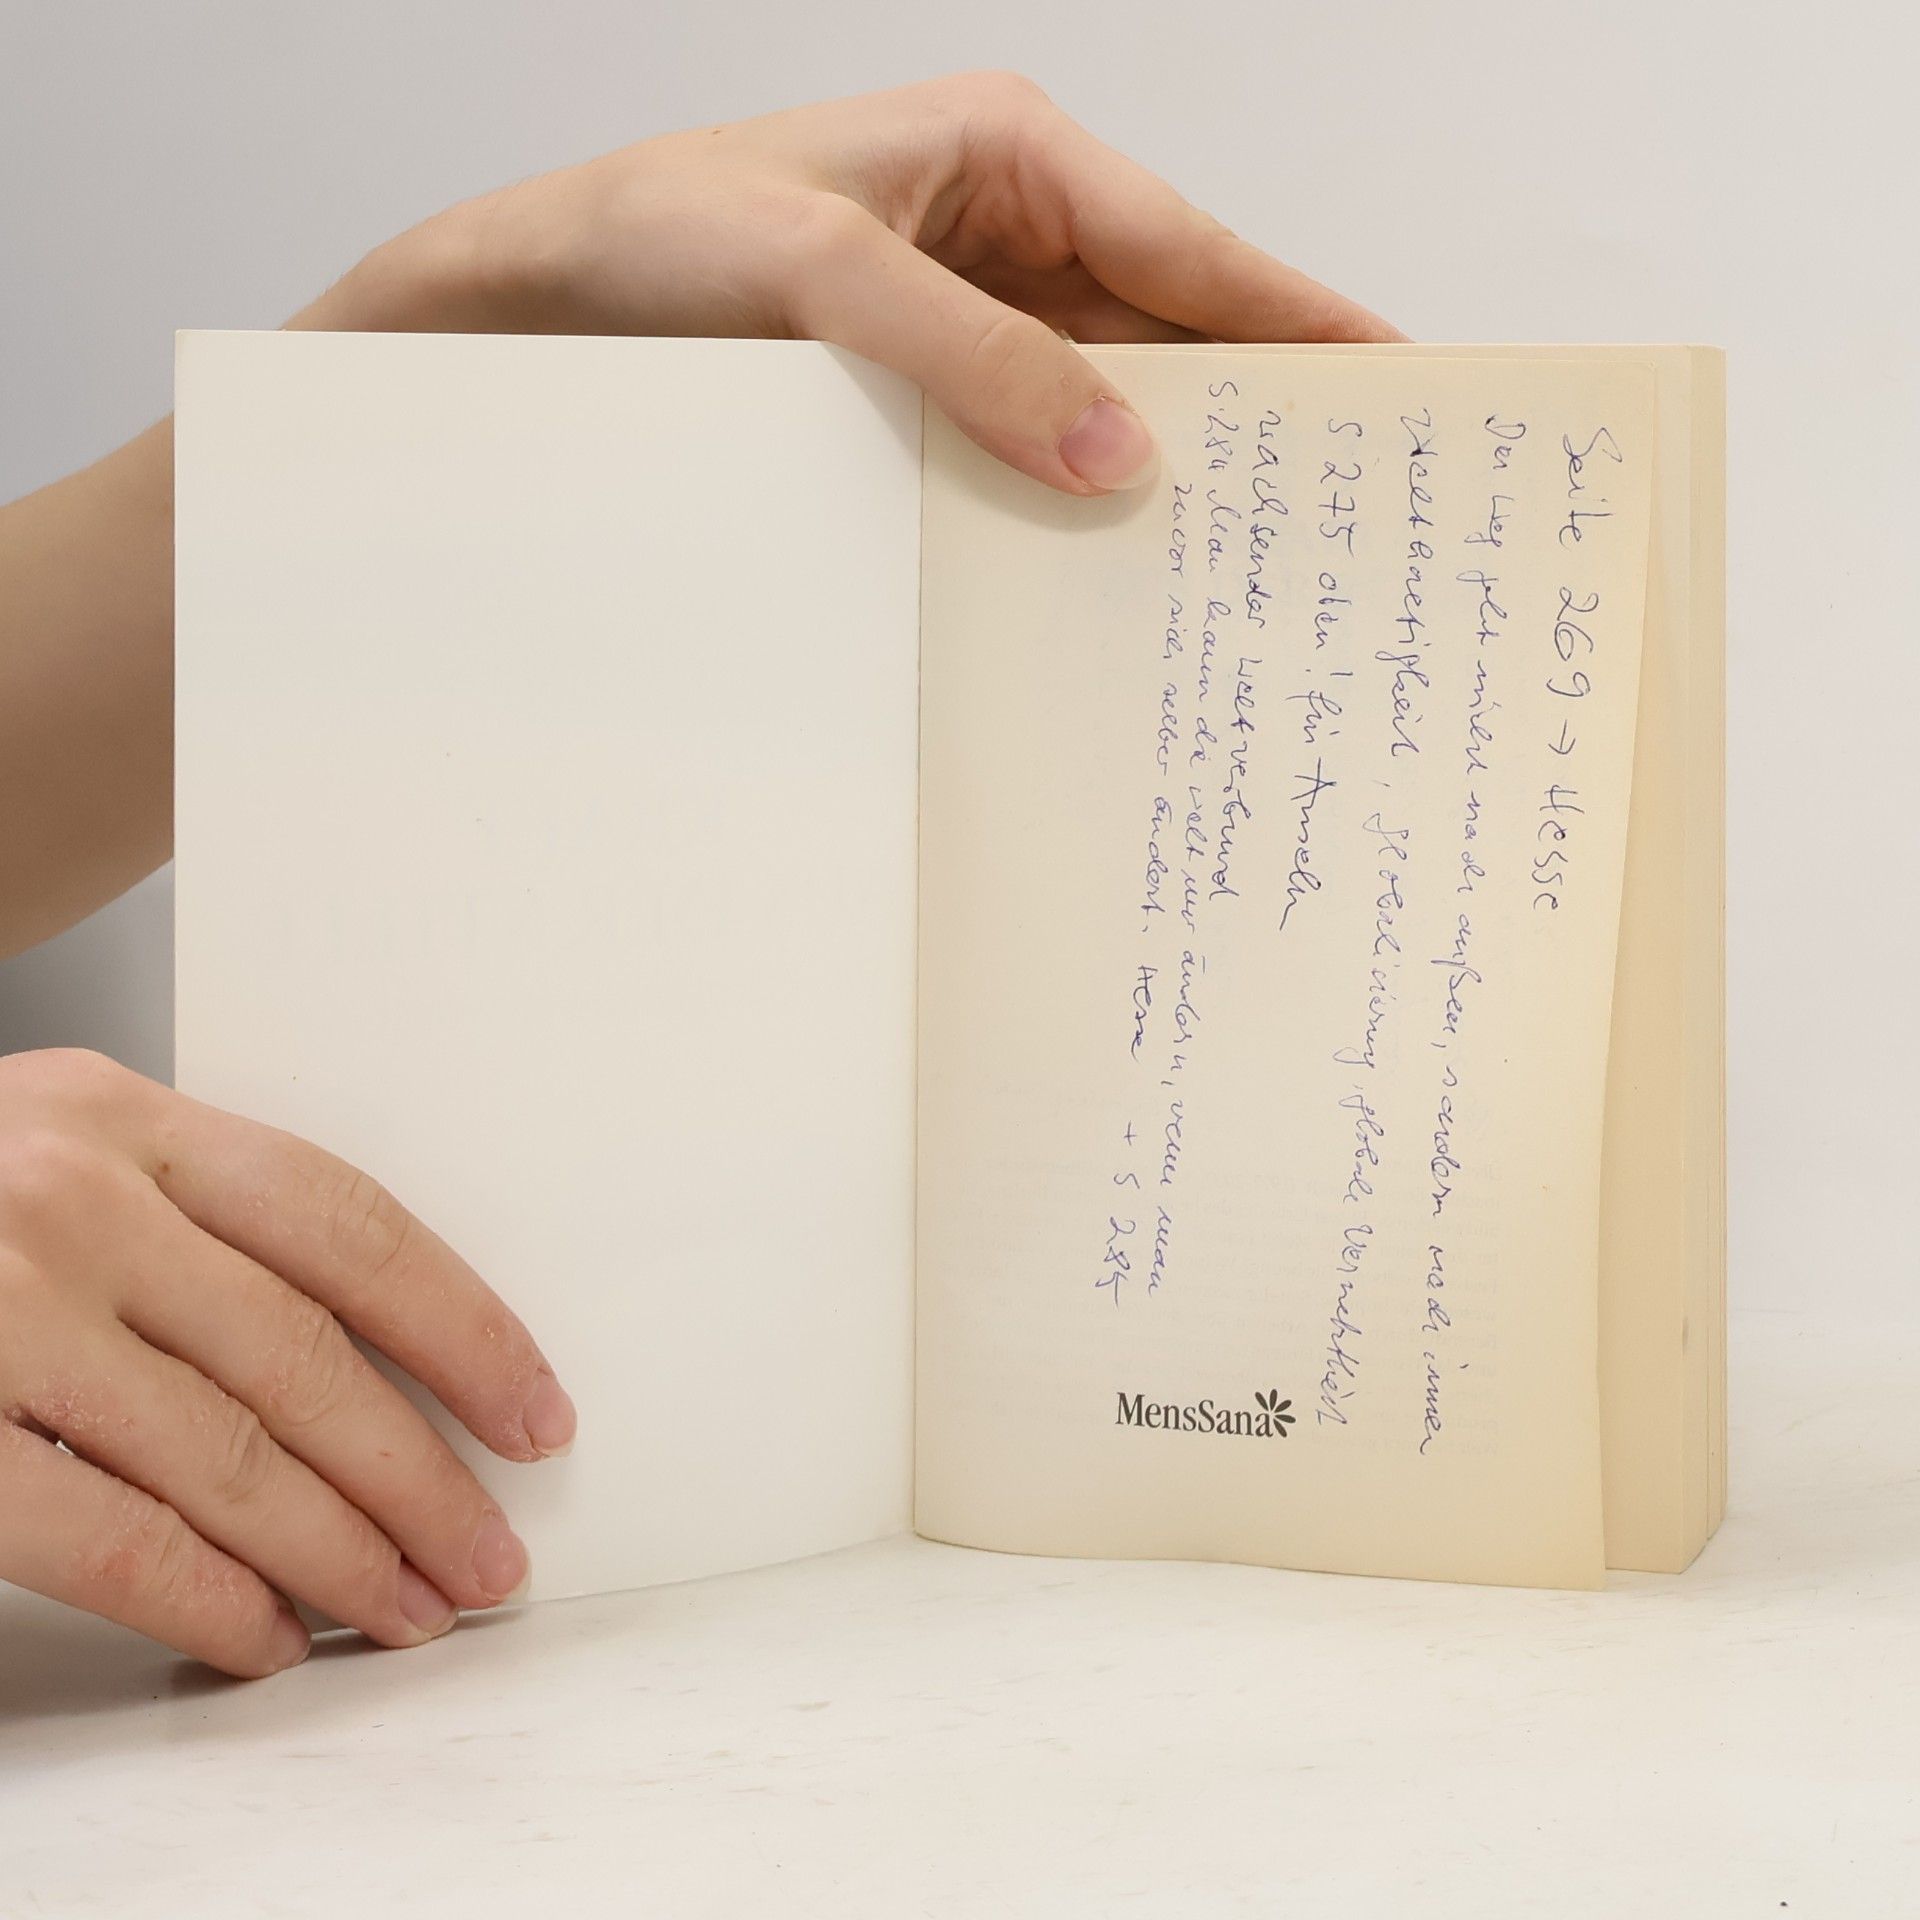 Seite 269 → Hesse
Der Weg geht nicht nach außen, sondern nach innen
Welthaltigkeit, Globalisierung, globale Vernetztheit
S 275 oben! für Anseln
wachsender Weltverbund
S. 284 Man kann die Welt nur ändern, wenn man
zuvor sich selber ändert. Hesse + S 284
MensSana